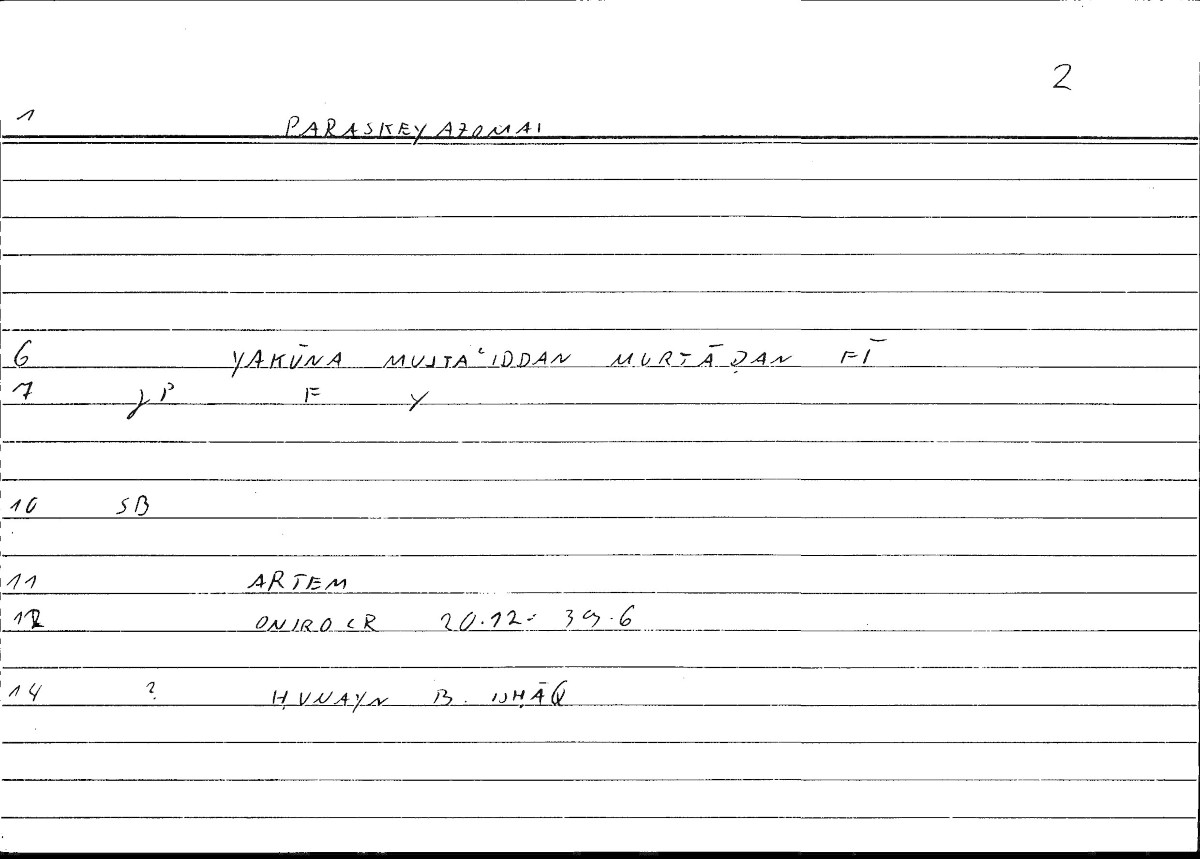 2
1 PARASKEYAZOMAI
6 YAKŪNA MUSTAʿIDDAN MURTĀḌAN FĪ
7 P F Y
10 SB
11 ARTEM
12 ONIROCR 20.12- 39.6
14 ? ḤUNAYN B. ISḤĀQ